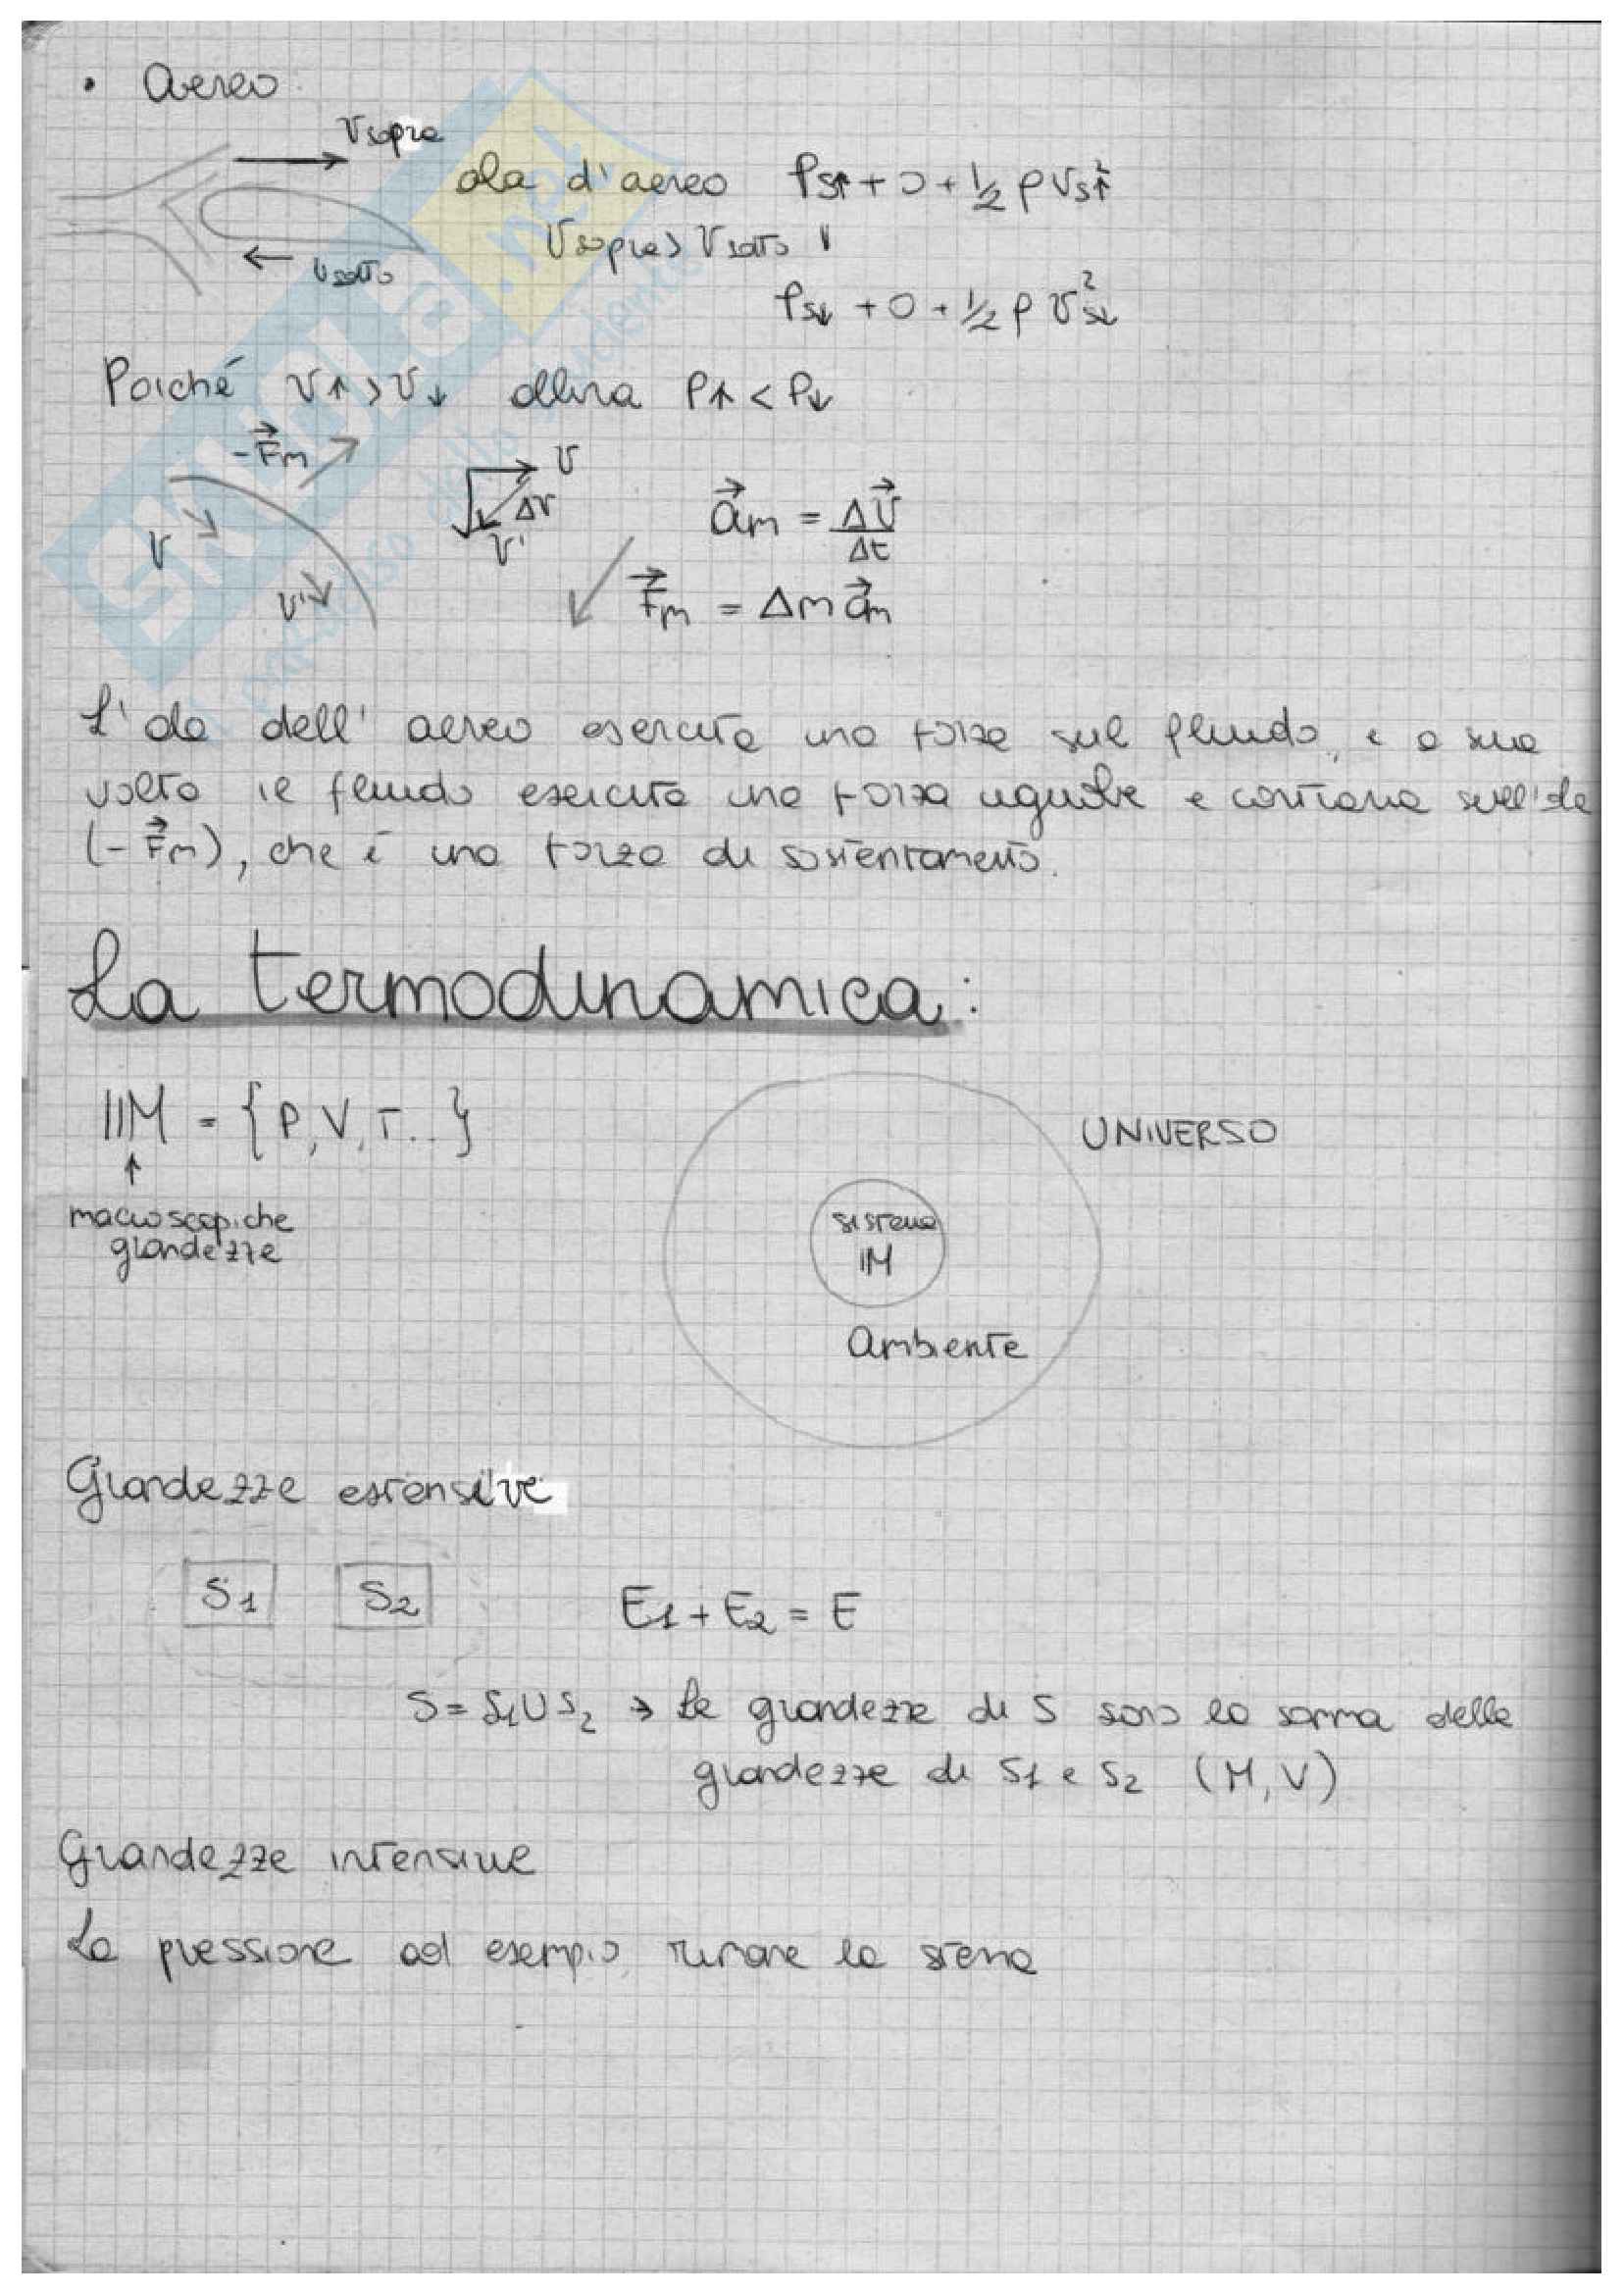 • Aereo
Vsopra
ala d'aereo P_S↑ + 0 + 1/2 ρ V_S↑²
Vsopra > Vsotto
Vsotto
P_S↓ + 0 + 1/2 ρ V_S↓²
Poiché V↑ > V↓ allora P↑ < P↓
-F⃗m
V
V'
V
ΔV
V'
a⃗m = ΔV⃗/Δt
F⃗m = Δm a⃗m
L'ala dell'aereo esercita una forza sul fluido, e a sua
volta il fluido esercita una forza uguale e contraria sull'ala
(-F⃗m), che è una forza di sostentamento.
La termodinamica:
M = {P, V, T...}
↑
macroscopiche
grandezze
UNIVERSO
sistema
M
Ambiente
Grandezze estensive
S1 S2
E1 + E2 = E
S = S1 U S2 → Le grandezze di S sono la somma delle
grandezze di S1 e S2 (M, V)
Grandezze intensive
La pressione ad esempio, rimane la stessa
SKUOLA.net
il paradiso dello studente